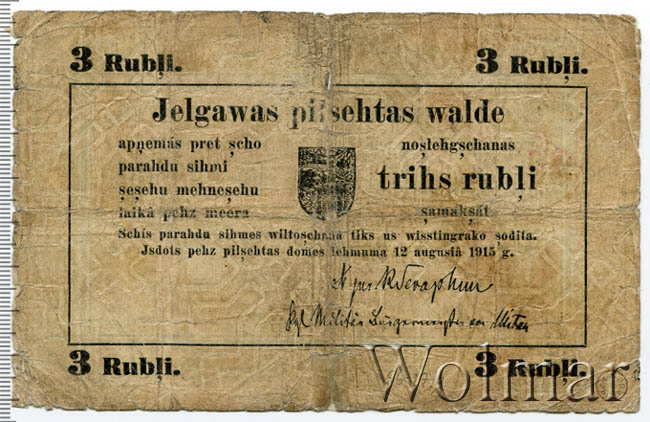 3 Rubļi. 3 Rubļi.
Jelgawas pilsehtas walde
apņemás pret şcho
parahdu sihmi
şeşehu mehneşehu
laikâ pehz meera
noşlehgşchanas
trihs rubļi
şamakşát
Schís parahdu sihmes wiltoşchana tiks us wisstingrako sodita.
Jsdots pehz pilşehtas domes lehmuma 12 augusiâ 1915 g.
Militär Bürgermeister von Mitau
3 Rubļi. 3 Rubļi.
Wolmar